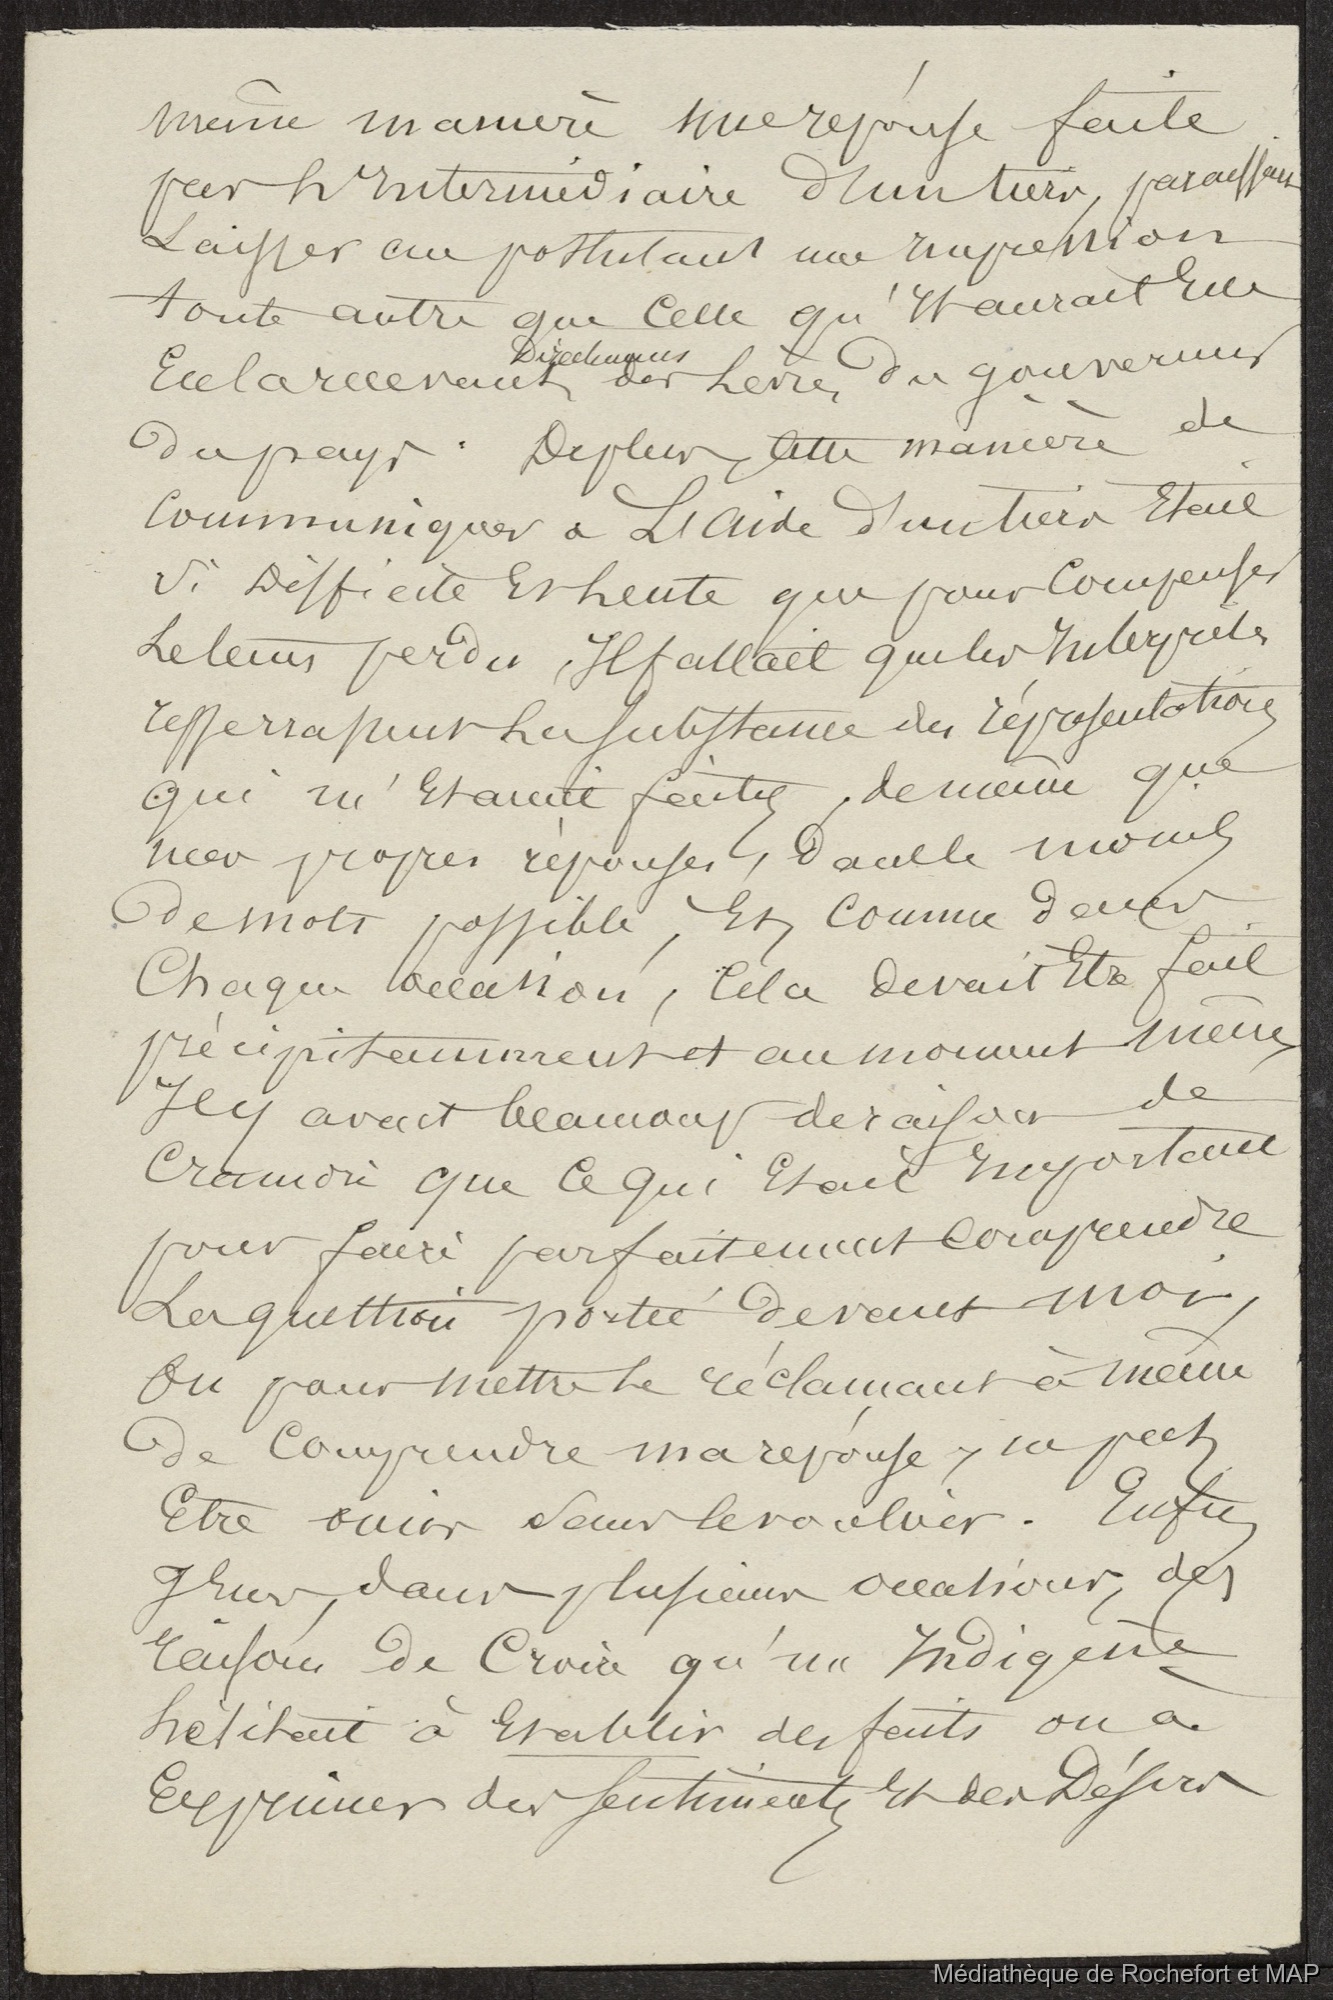 même manière une réponse faite
par L'Intermédiaire d'un tiers, paraissait
Laisser au postulant une Impression
toute autre que Celle qu'Il aurait Eue
En la recevant Directement des Lèvres du gouverneur
du pays. De plus, cette manière de
Communiquer à L'aide d'un tiers Etait
si Difficile Et Lente que pour Compenser
Le tems perdu, Il fallait que les Interprètes
resserrassent La Substance des réprésentations
qui m'Etaient faites, de même que
mes propres réponses, dans le moins
de mots possible, Et, Comme dans
Chaque occasion, Cela devait Etre fait
précipitamment et au moment même,
Il y avait beaucoup de raisons de
Craindre que Ce qui Etait Important
pour faire parfaitement Comprendre
La question portée devant moi,
Ou pour mettre Le réclamant à même
de Comprendre ma réponse, ne peut
Etre omis Sans le vouloir. Enfin
J'Eus, dans plusieurs occasions, des
raisons de Croire qu'un Indigène
hésitait à Etablir des faits ou à
Exprimer des Sentiments Et des Désirs
Médiathèque de Rochefort et MAP